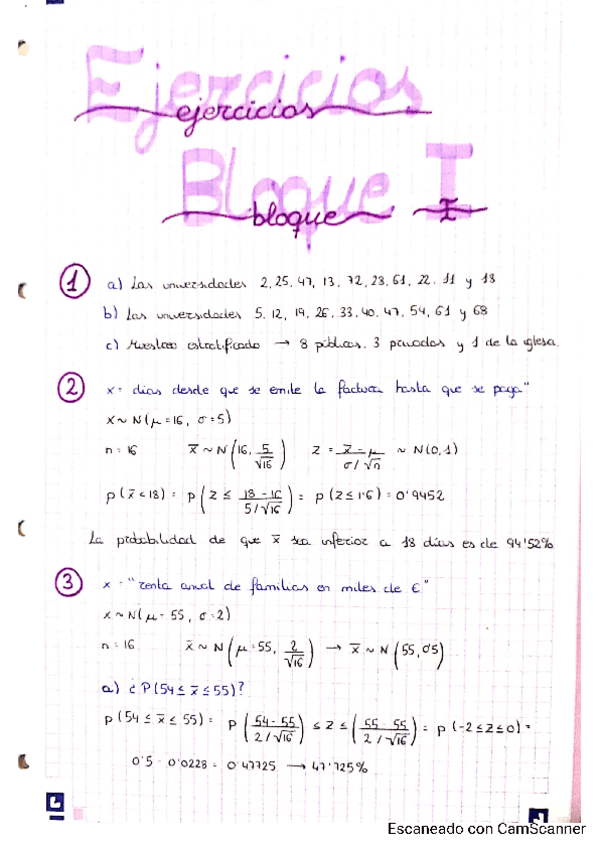 Ejercicios
ejercicios
Bloque I
bloque I
1 a) Las universidades 2, 25, 47, 13, 72, 23, 61, 22, 11 y 18
b) Las universidades 5, 12, 19, 26, 33, 40, 47, 54, 61 y 68
c) Muestreo estratificado → 8 públicas, 3 privadas y 1 de la iglesia.
2 x = días desde que se emite la factura hasta que se paga"
x ~ N(μ = 16, σ = 5)
n = 16 x̄ ~ N(16, 5/√16) Z = x̄ - μ / σ/√n ~ N(0,1)
p(x̄ < 18) = p(Z ≤ 18 - 16 / 5/√16) = p(Z ≤ 1'6) = 0'9452
La probabilidad de que x̄ sea inferior a 18 días es de 94'52%
3 x = "renta anual de familias en miles de €"
x ~ N(μ = 55, σ = 2)
n = 16 x̄ ~ N(μ = 55, 2/√16) → x̄ ~ N(55, 0'5)
a) ¿P(54 ≤ x̄ ≤ 55)?
p(54 ≤ x̄ ≤ 55) = p(54 - 55 / 2/√16) ≤ z ≤ (55 - 55 / 2/√16) = p(-2 ≤ z ≤ 0) =
0'5 - 0'0228 = 0'47725 → 47'725%
Escaneado con CamScanner